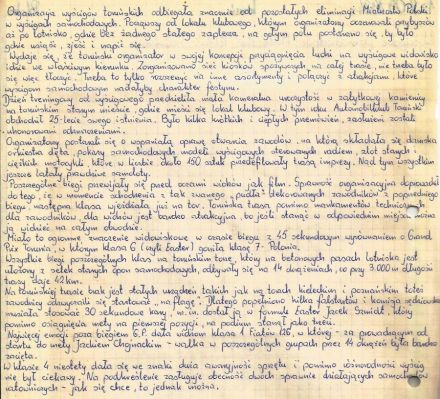 Organizacja wyścigów toruńskich odbiegała znacznie od pozostałych eliminacji Mistrzostw Polski
w wyścigach samochodowych. Począwszy od lokalu klubowego, którym organizatorzy oczarowali przybyszów
aż po lotnisko, gdzie bez żadnego stałego zaplecza, na gołym polu postarano się, by było
gdzie usiąść, zjeść i napić się.
Wydaje się, że toruński organizator w swojej koncepcji przyciągnięcia ludzi na wyścigowe widowisko
idzie we właściwym kierunku. Zorganizowano sieć kiosków spożywczych na całej trasie, nie trzeba było
się więc tłoczyć. Trzeba to tylko rozszerzyć na inne asortymenty i połączyć z atrakcjami, które
wyścigom samochodowym nadałyby charakter festynu.
Dzień treningowy od wyścigowego przedzieliła miła kameralna uroczystość w zabytkowej kamienicy
na toruńskim starym mieście, gdzie mieści się lokal klubowy. W tym roku Automobilklub Toruński
obchodził 25-lecie swego istnienia. Było kilka krótkich i ciepłych przemówień, zasłużeni zostali
uhonorowani odznaczeniami.
Organizatorzy postarali się o wspaniałą oprawę otwarcia zawodów, na którą składała się dziarska
orkiestra dęta, pokazy samochodowych modeli wyścigowych sterowanych radiem, zlot starych i
ciężkich motocykli, które w liczbie około 150 sztuk przedefilowały trasą imprezy. Nad tym wszystkim
jeszcze latały prawdziwe samoloty.
Poszczególne biegi przewijały się przed oczami widzów jak film. Sprawność organizacyjna doprowadziła
do tego, że w momencie zdawania z tak zwanego pudła dekorowanych zawodników z poprzedniego
biegu, następna klasa wyjeżdżała już na tor. Toruńska trasa pomimo mankamentów technicznych
dla zawodników, dla widzów jest bardzo atrakcyjna, bo jeśli stanąć w odpowiednim miejscu można
ją widzieć na całym obwodzie.
Miało to ogromne znaczenie widowiskowe w czasie biegu z 45 sekundowym wyrównaniem o Grand
Prix Torunia, w którym klasa 6 (czyli Easter) goniła klasę 7- Polonia.
Wszystkie biegi poszczególnych klas na toruńskim torze, który na betonowych pasach lotniska jest
ułożony z setek starych opon samochodowych, odbywały się na 14 okrążeniach, co przy 3.000 m długości
trasy daje 42 km.
Na toruńskiej trasie brak jest stałych urządzeń takich jak na torach kieleckim i poznańskim toteż
zawodnicy odzwyczaili się startować „na flagę". Dlatego popełniono kilka falstartów i komisja sędziowska
musiała stosować 30 sekundowe kary, m. in. dostał ją w formule Easter Jacek Szmidt, który
pomimo osiągnięcia mety na pierwszej pozycji, na podium stanął jako trzeci.
Najwięcej emocji poza biegiem G.P. dała widzom klasa 1 Fiatów 126, w której - za prowadzącym od
startu do mety Jackiem Chojnackim - walka w poszczególnych grupach przez 14 okrążeń była bardzo
zacięta.
W klasie 4 niestety dała się we znaki duża awaryjność sprzętu i pomimo różnorodności wyścig
nie był ciekawy. Na podkreślenie zasługuje obecność dwóch sprawnie działających samochodów
ratowniczych - jak się chce, to jednak można.